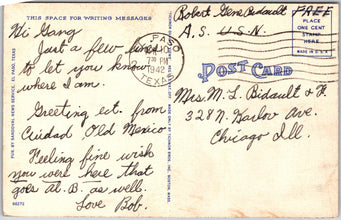 THIS SPACE FOR WRITING MESSAGES
Hi Gang
Just a few lines
to let you know
where I am.
Greeting ect. from
Ciudad Old Mexico
Feeling fine wish
you were here that
goes al. B. as well.
Love Bob.
PUB. BY SANDOVAL NEWS SERVICE, EL PASO, TEXAS
PASO
7 30 PM
1942
TEXAS
Robert Gene Bidault
A.S. U.S.N.
FREE
PLACE
ONE CENT
STAMP
HERE
MADE IN U.S.A.
POST CARD
Mrs. M. L. Bidault & F.
328 N. Harlov Ave.
Chicago Ill.